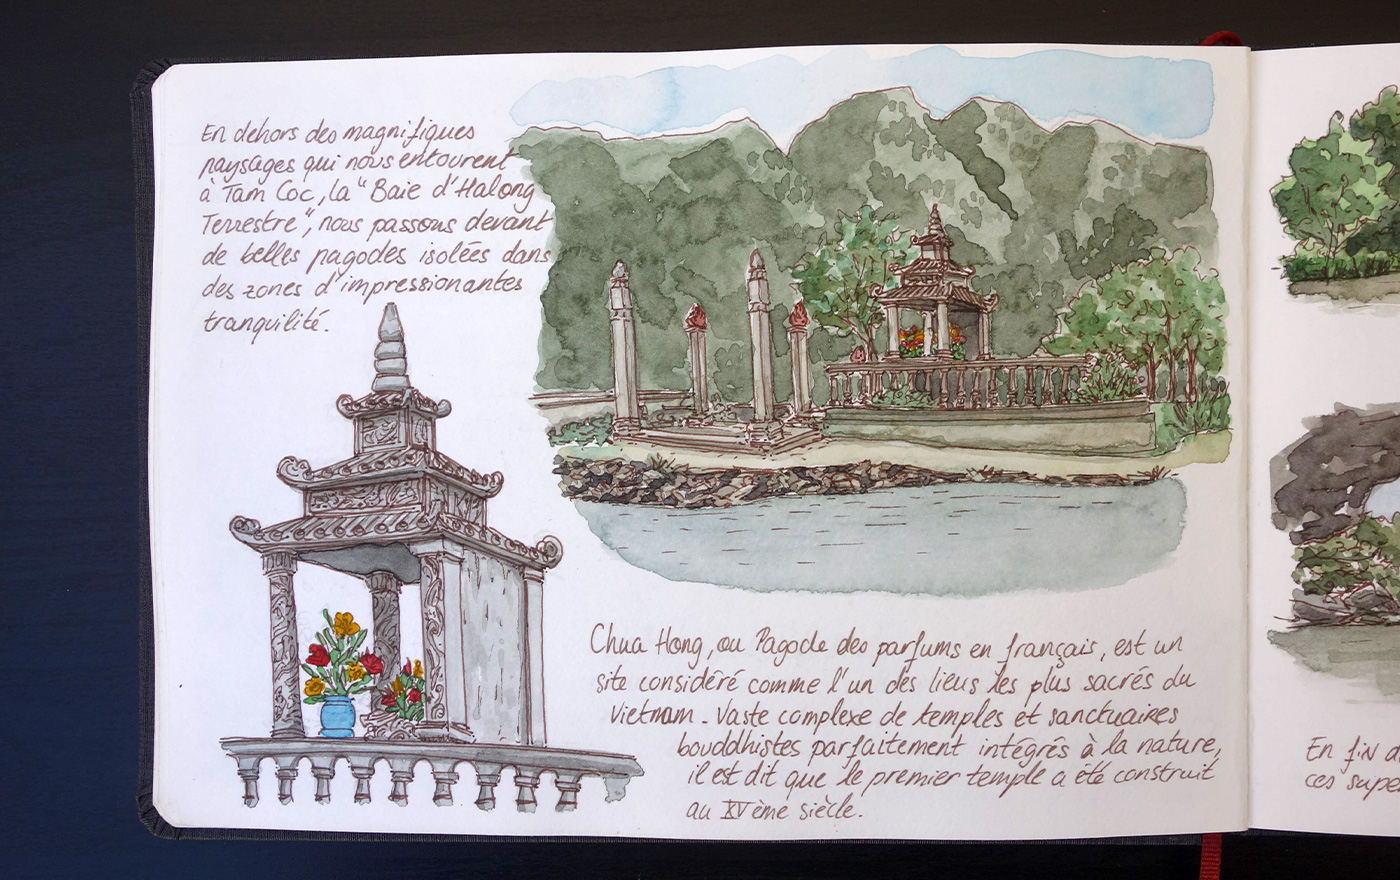 En dehors des magnifiques
paysages qui nous entourent
à Tam Coc, la "Baie d'Halong
Terrestre", nous passons devant
de belles pagodes isolées dans
des zones d'impressionantes
tranquilité.
Chua Hong, ou Pagode des parfums en français, est un
site considéré comme l'un des lieus les plus sacrés du
Vietnam. Vaste complexe de temples et sanctuaires
bouddhistes parfaitement intégrés à la nature,
il est dit que le premier temple a été construit
au XVème siècle.
En fin
ces